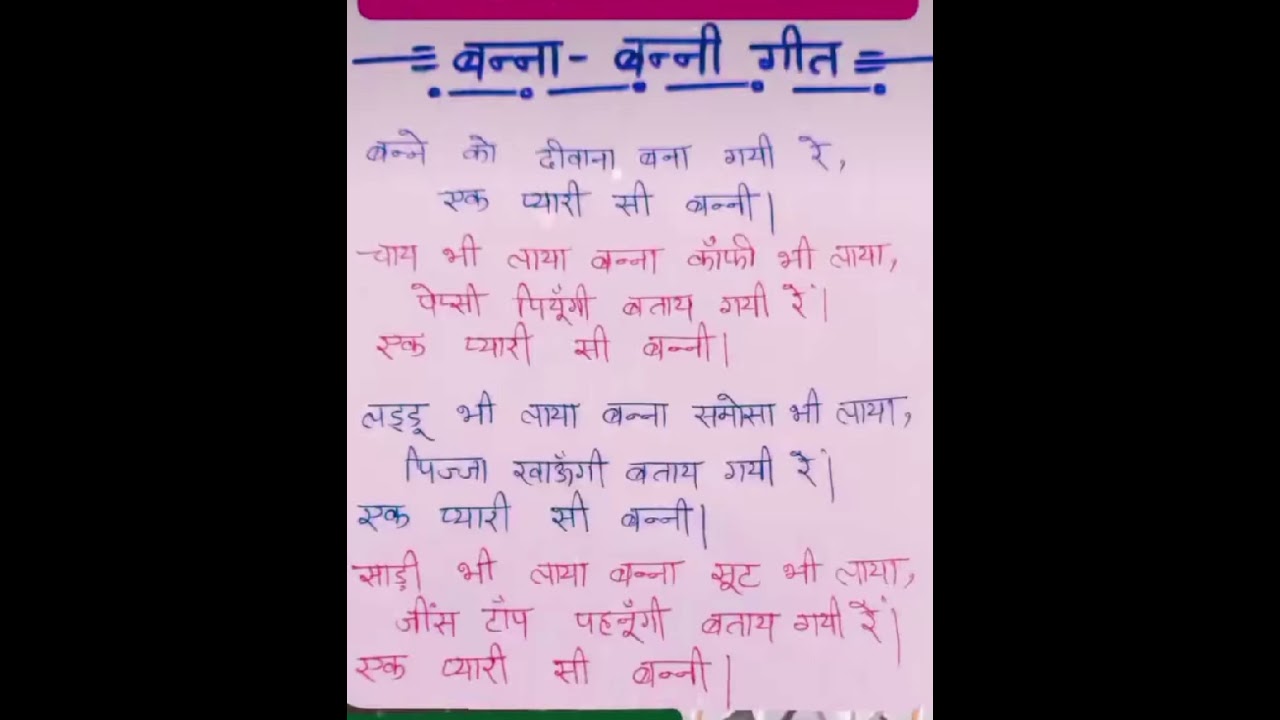 बन्ना - बन्नी गीत
बन्ने को दीवाना बना गयी रे,
एक प्यारी सी बन्नी।
चाय भी लाया बन्ना कॉफी भी लाया,
पेप्सी पियूँगी बताय गयी रें।
एक प्यारी सी बन्नी।
लड्डू भी लाया बन्ना समोसा भी लाया,
पिज्जा खाऊँगी बताय गयी रें।
एक प्यारी सी बन्नी।
साड़ी भी लाया बन्ना सूट भी लाया,
जींस टॉप पहनूँगी बताय गयी रें।
एक प्यारी सी बन्नी।